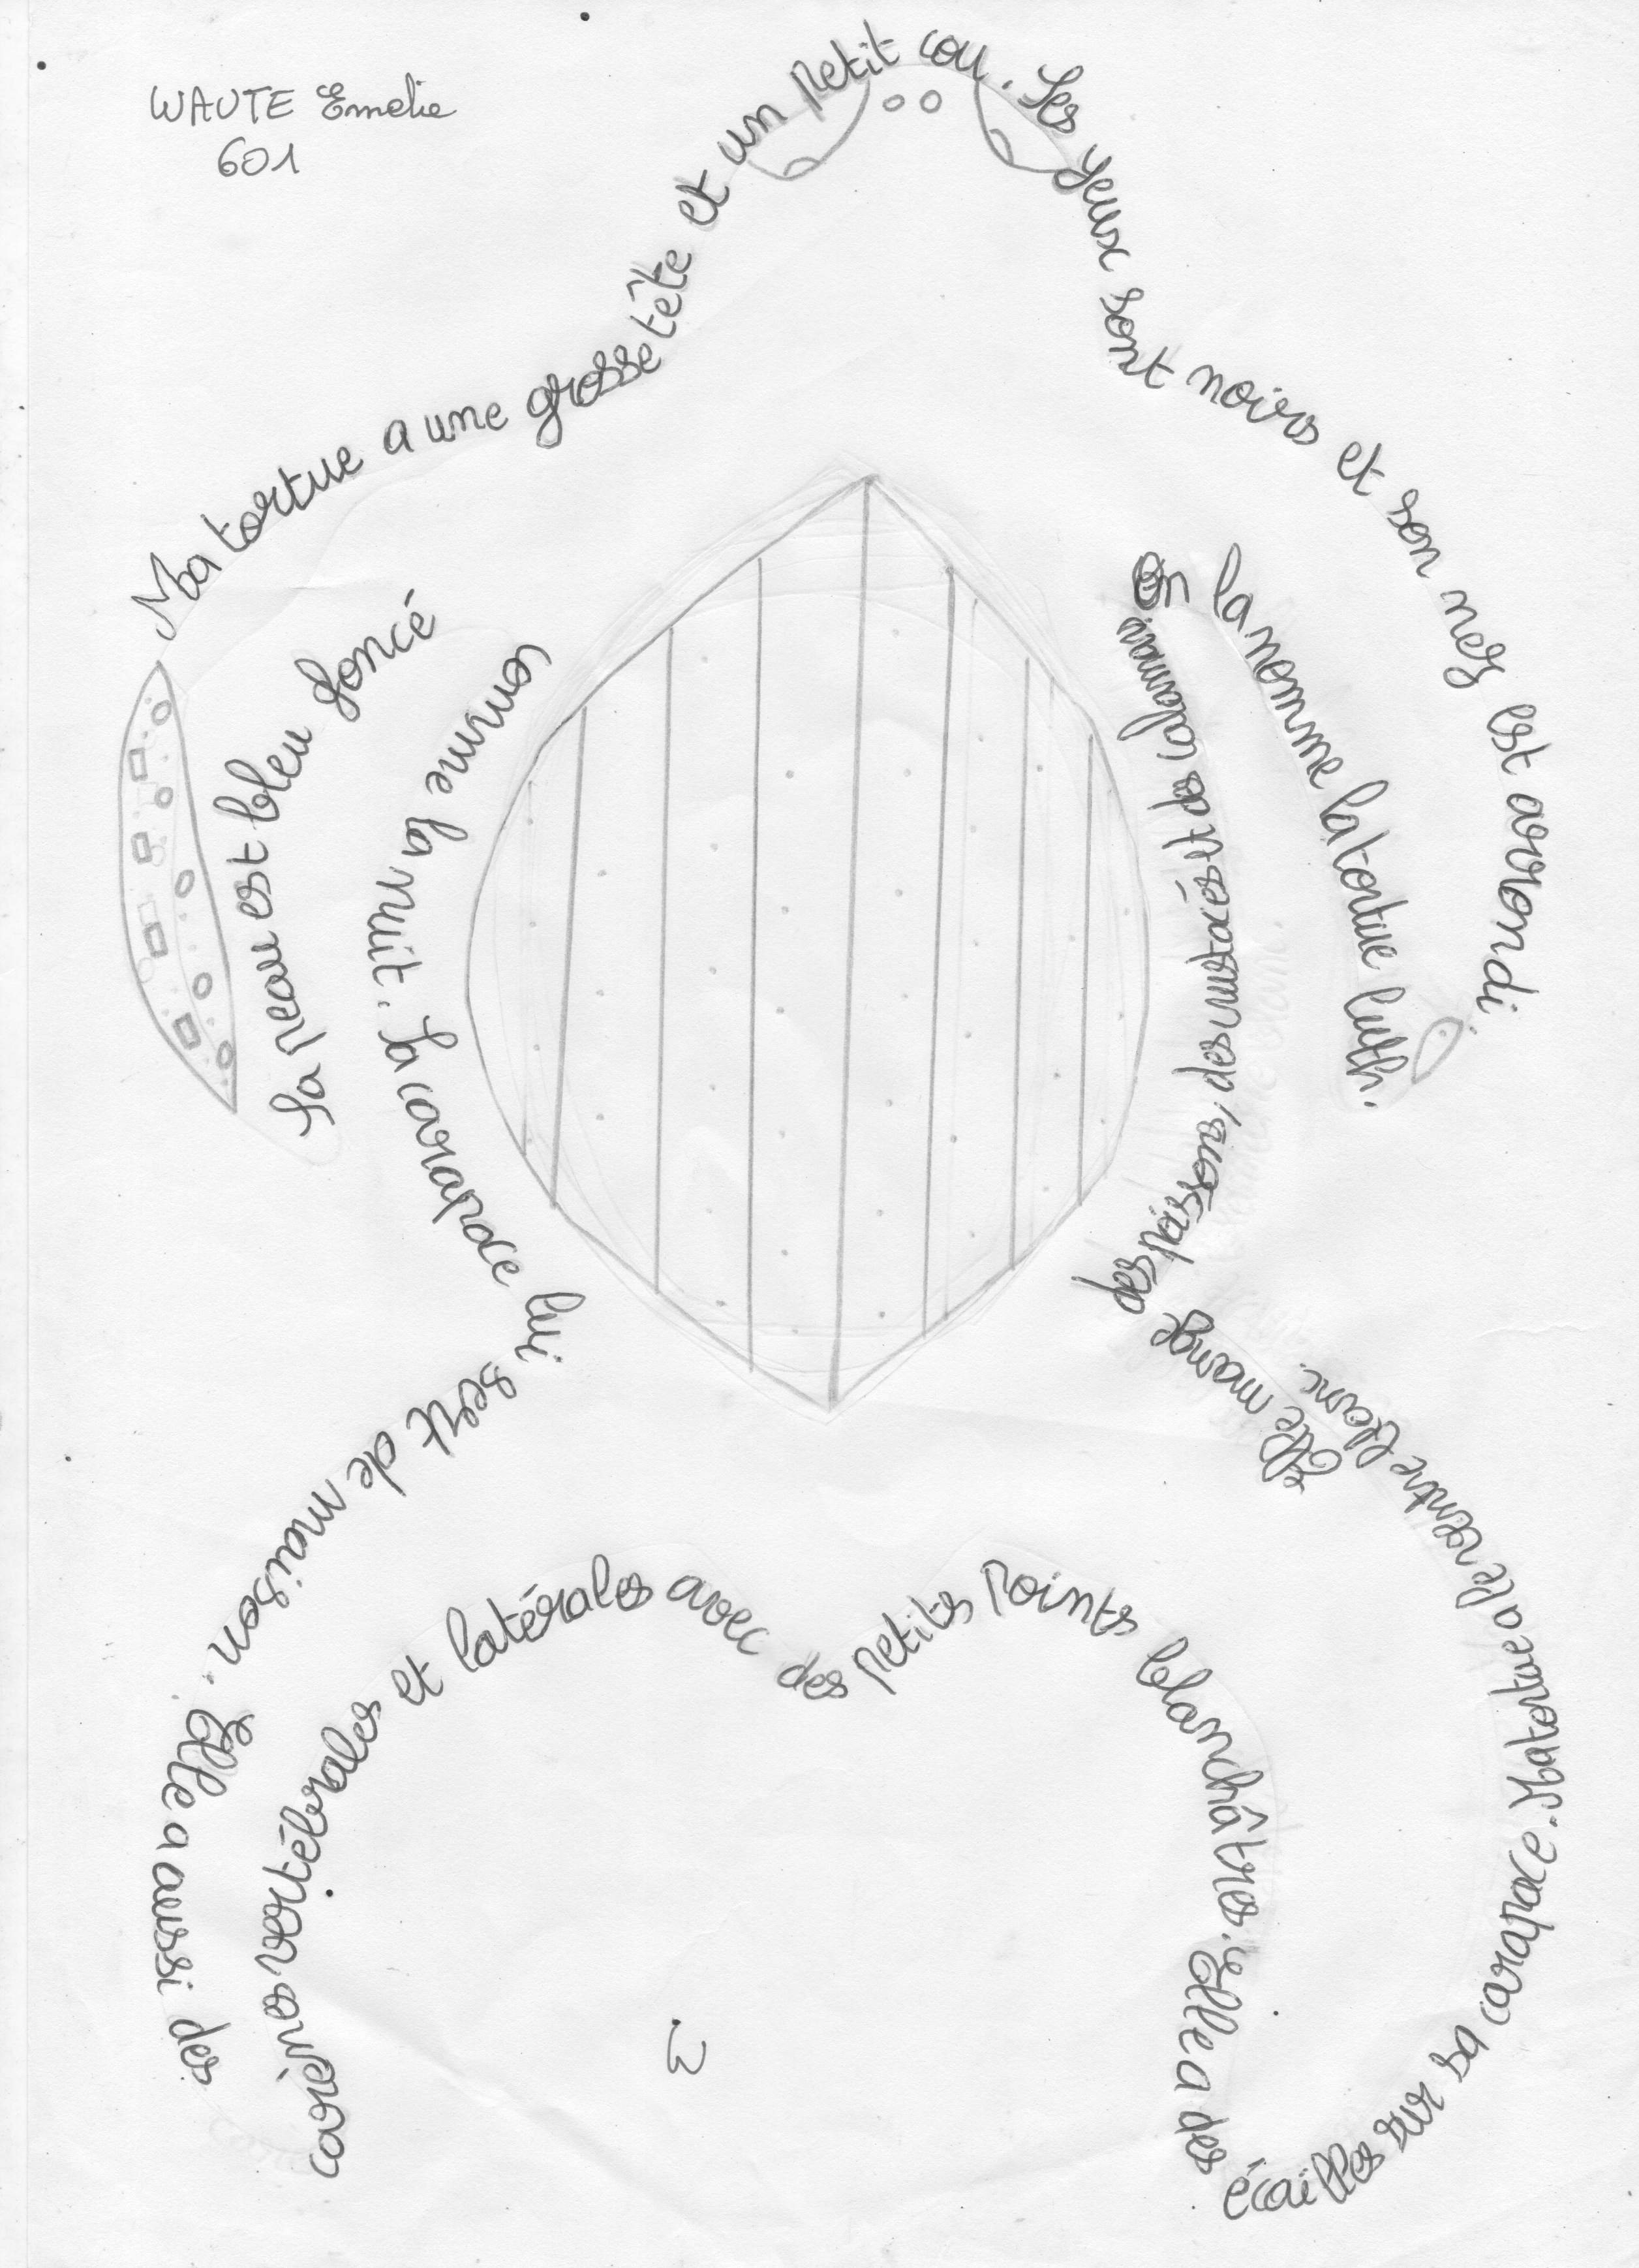 WAUTE Emelie
601
Ma tortue a une grosse tête et un petit cou. Ses yeux sont noirs et son nez est arrondi
Sa peau est bleu foncé
comme la nuit. Sa carapace lui sert de maison. Elle a aussi des
carènes vertébrales et latérales avec des petits points blanchâtres. Elle a des
écailles sur sa carapace. Ma tortue a le ventre blanc.
Elle mange des poissons, des crustacés et des calamars. On
la nomme la tortue luth.
3